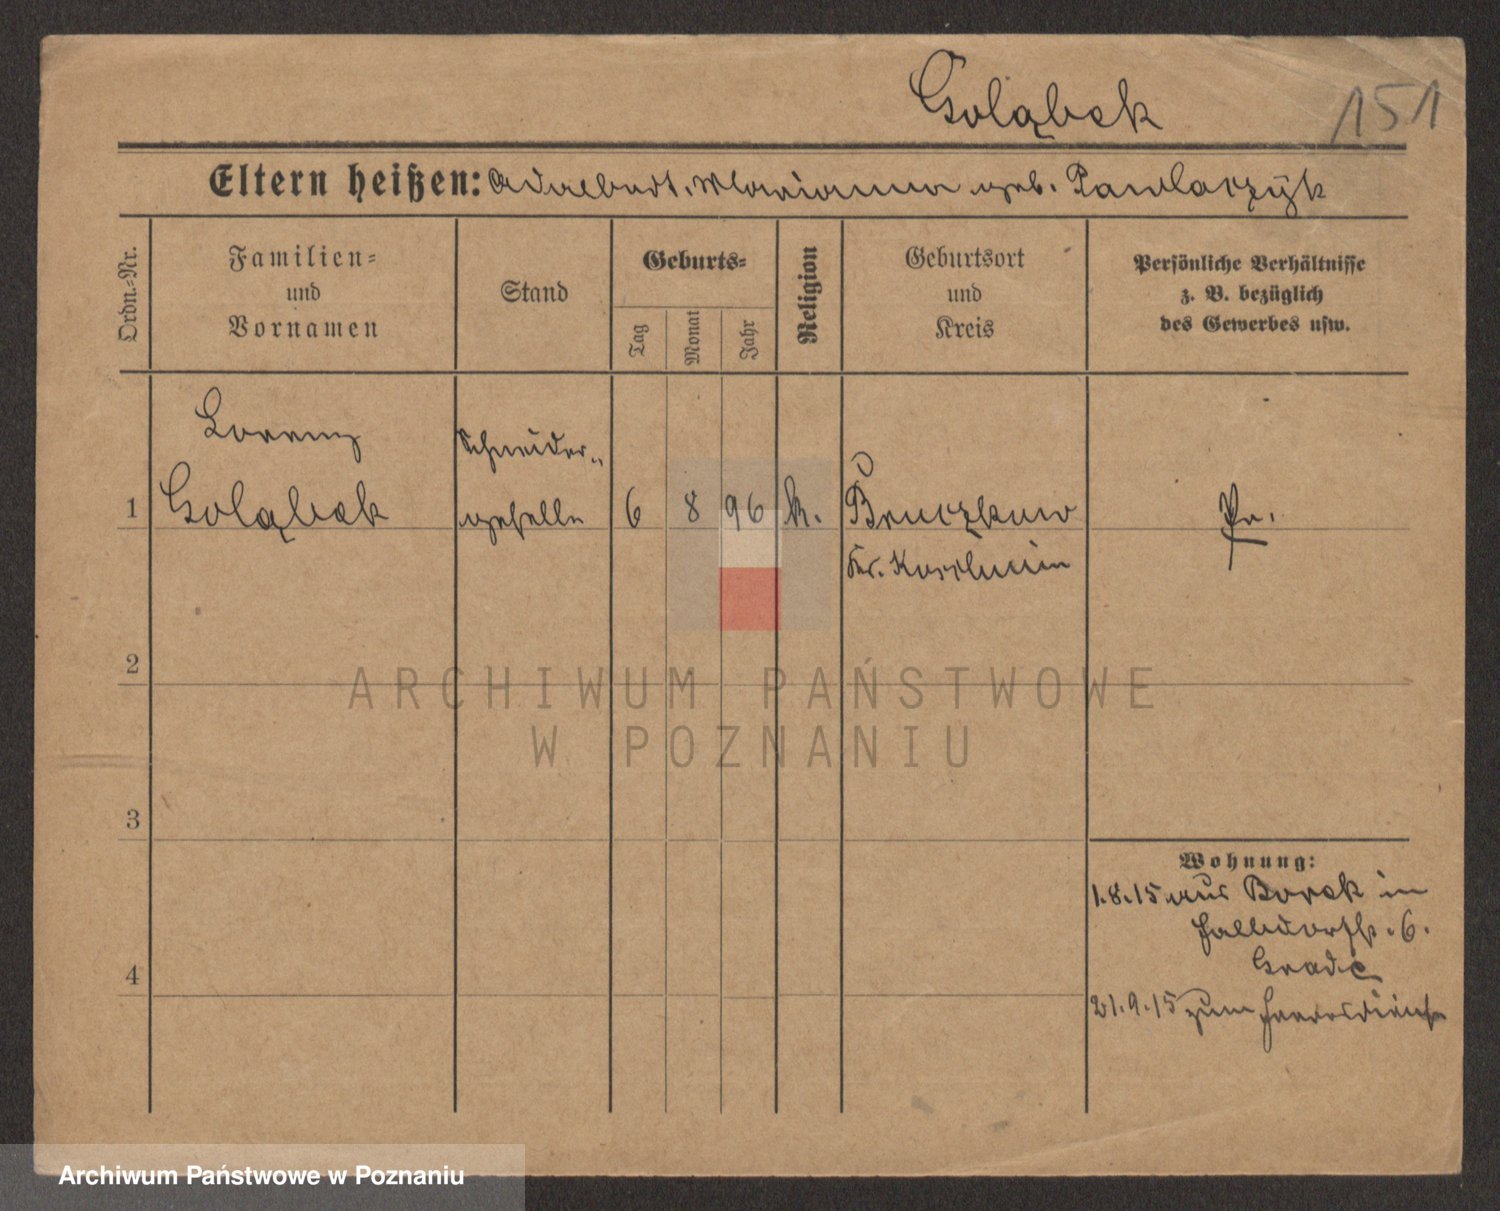 Goląbek
151
Eltern heißen: Adalbert, Marianna geb. Pawlaczyk
Ordn.-Nr.
Familien-
und
Vornamen
Stand
Geburts-
Tag
Monat
Jahr
Religion
Geburtsort
und
Kreis
Persönliche Verhältnisse
z. B. bezüglich
des Gewerbes usw.
Lorenz
Schneider-
1 Goląbek geselle 6 8 96 k. Bruczkow Pr.
Kr. Koschmin
2
ARCHIWUM PAŃSTWOWE
W POZNANIU
3
Wohnung:
1.8.15 aus Borek in
6.
4
21.9.15 zum Heeresdienst
Archiwum Państwowe w Poznaniu